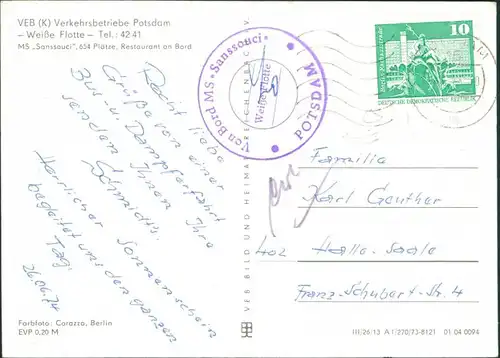 VEB (K) Verkehrsbetriebe Potsdam
– Weiße Flotte – Tel.: 42 41
MS „Sanssouci", 654 Plätze, Restaurant an Bord
Recht liebe
Grüße von einer
Bus- u. Dampferfahrt
senden Ihnen Ihre
Schmidt's.
Herrlicher Sonnenschein
begleitet uns den ganzen
Tag.
26.06.74
Farbfoto: Corazza, Berlin
EVP 0,20 M
VEB BILD UND HEIMAT REICHENBACH I. V.
Von Bord MS „Sanssouci"
Weiße Flotte
POTSDAM
10
DEUTSCHE DEMOKRATISCHE REPUBLIK
Familie
Karl Genther
402 Halle-Saale
Franz-Schubert-Str. 4
III/26/13 A 1/270/73-8121 01 04 0094